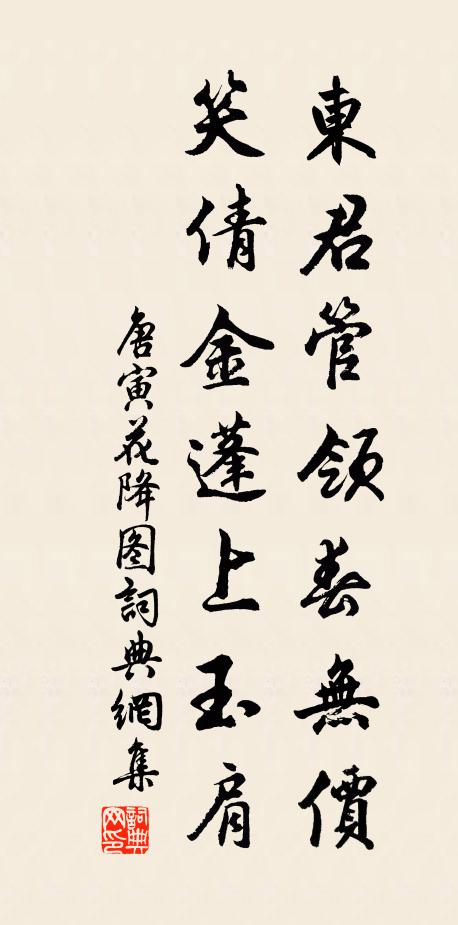 東君管領春無價
笑倩金蓬上玉肩
唐寅花降图詞典網集
詞典网印